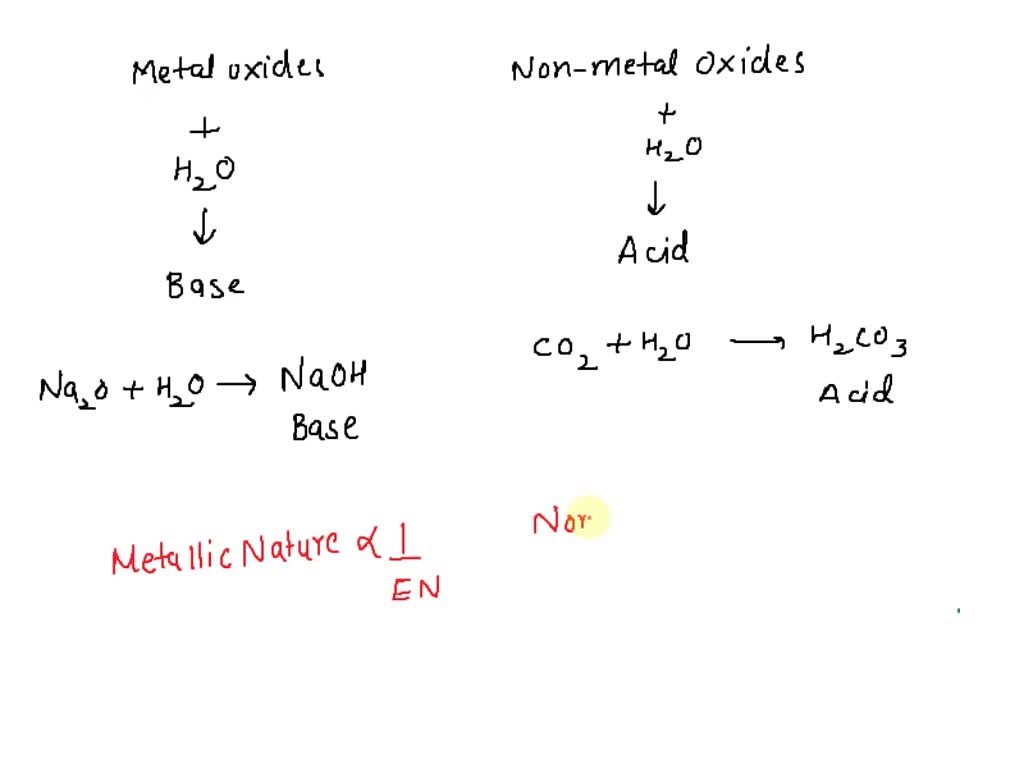 Metal oxides
+
H₂O
↓
Base
Na₂O + H₂O → NaOH
Base
Non-metal Oxides
+
H₂O
↓
Acid
CO₂ + H₂O → H₂CO₃
Acid
Metallic Nature ∝ 1
EN
Non